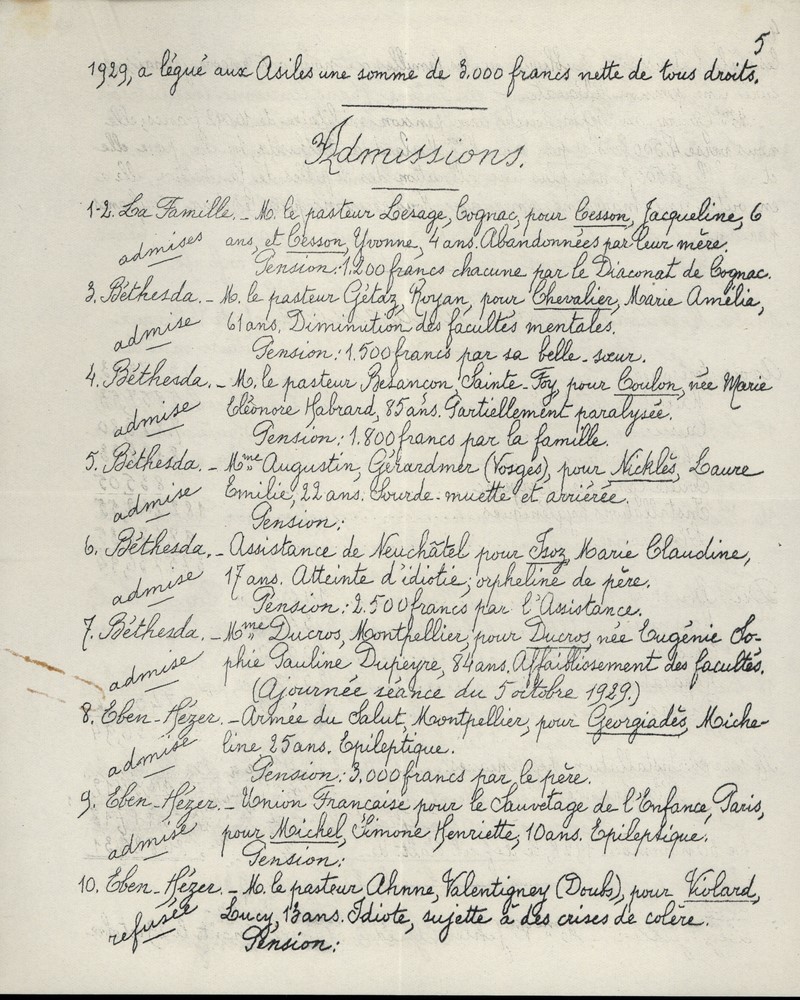 5
1929, a légué aux Asiles une somme de 3.000 francs nette de tous droits.
Admissions.
1-2. La Famille. - M. le pasteur Lesage, Cognac, pour Cesson, Jacqueline, 6
admises
ans, et Cesson, Yvonne, 4 ans. Abandonnées par leur mère.
Pension: 1.200 francs chacune par le Diaconat de Cognac.
3. Béthesda. - M. le pasteur Gétaz, Royan, pour Chevalier, Marie Amélia,
admise
61 ans. Diminution des facultés mentales.
Pension: 1.500 francs par sa belle-sœur.
4. Béthesda. - M. le pasteur Besançon, Sainte-Foy, pour Coulon, née Marie
admise
Eléonore Habrard, 85 ans. Partiellement paralysée.
Pension: 1.800 francs par la famille.
5. Béthesda. - Mme Augustin, Gérardmer (Vosges), pour Nicklès, Laure
admise
Emilie, 22 ans. Sourde-muette et arriérée.
Pension:
6. Béthesda. - Assistance de Neuchâtel pour Isoz, Marie Claudine,
admise
17 ans. Atteinte d'idiotie; orpheline de père.
Pension: 2.500 francs par l'Assistance.
7. Béthesda. - Mme Ducros, Montpellier, pour Ducros, née Eugénie So-
admise
phie Pauline Dupeyre, 84 ans. Affaiblissement des facultés.
(Ajournée séance du 5 octobre 1929.)
8. Eben-Hézer. - Armée du Salut, Montpellier, pour Georgiadès, Miche-
admise
line, 25 ans. Epileptique.
Pension: 3.000 francs par le père.
9. Eben-Hézer. - Union Française pour le Sauvetage de l'Enfance, Paris,
admise
pour Michel, Simone Henriette, 10 ans. Epileptique.
Pension:
10. Eben-Hézer. - M. le pasteur Ahnne, Valentigney (Doubs), pour Violard,
refusée
Lucy, 13 ans. Idiote, sujette à des crises de colère.
Pension: